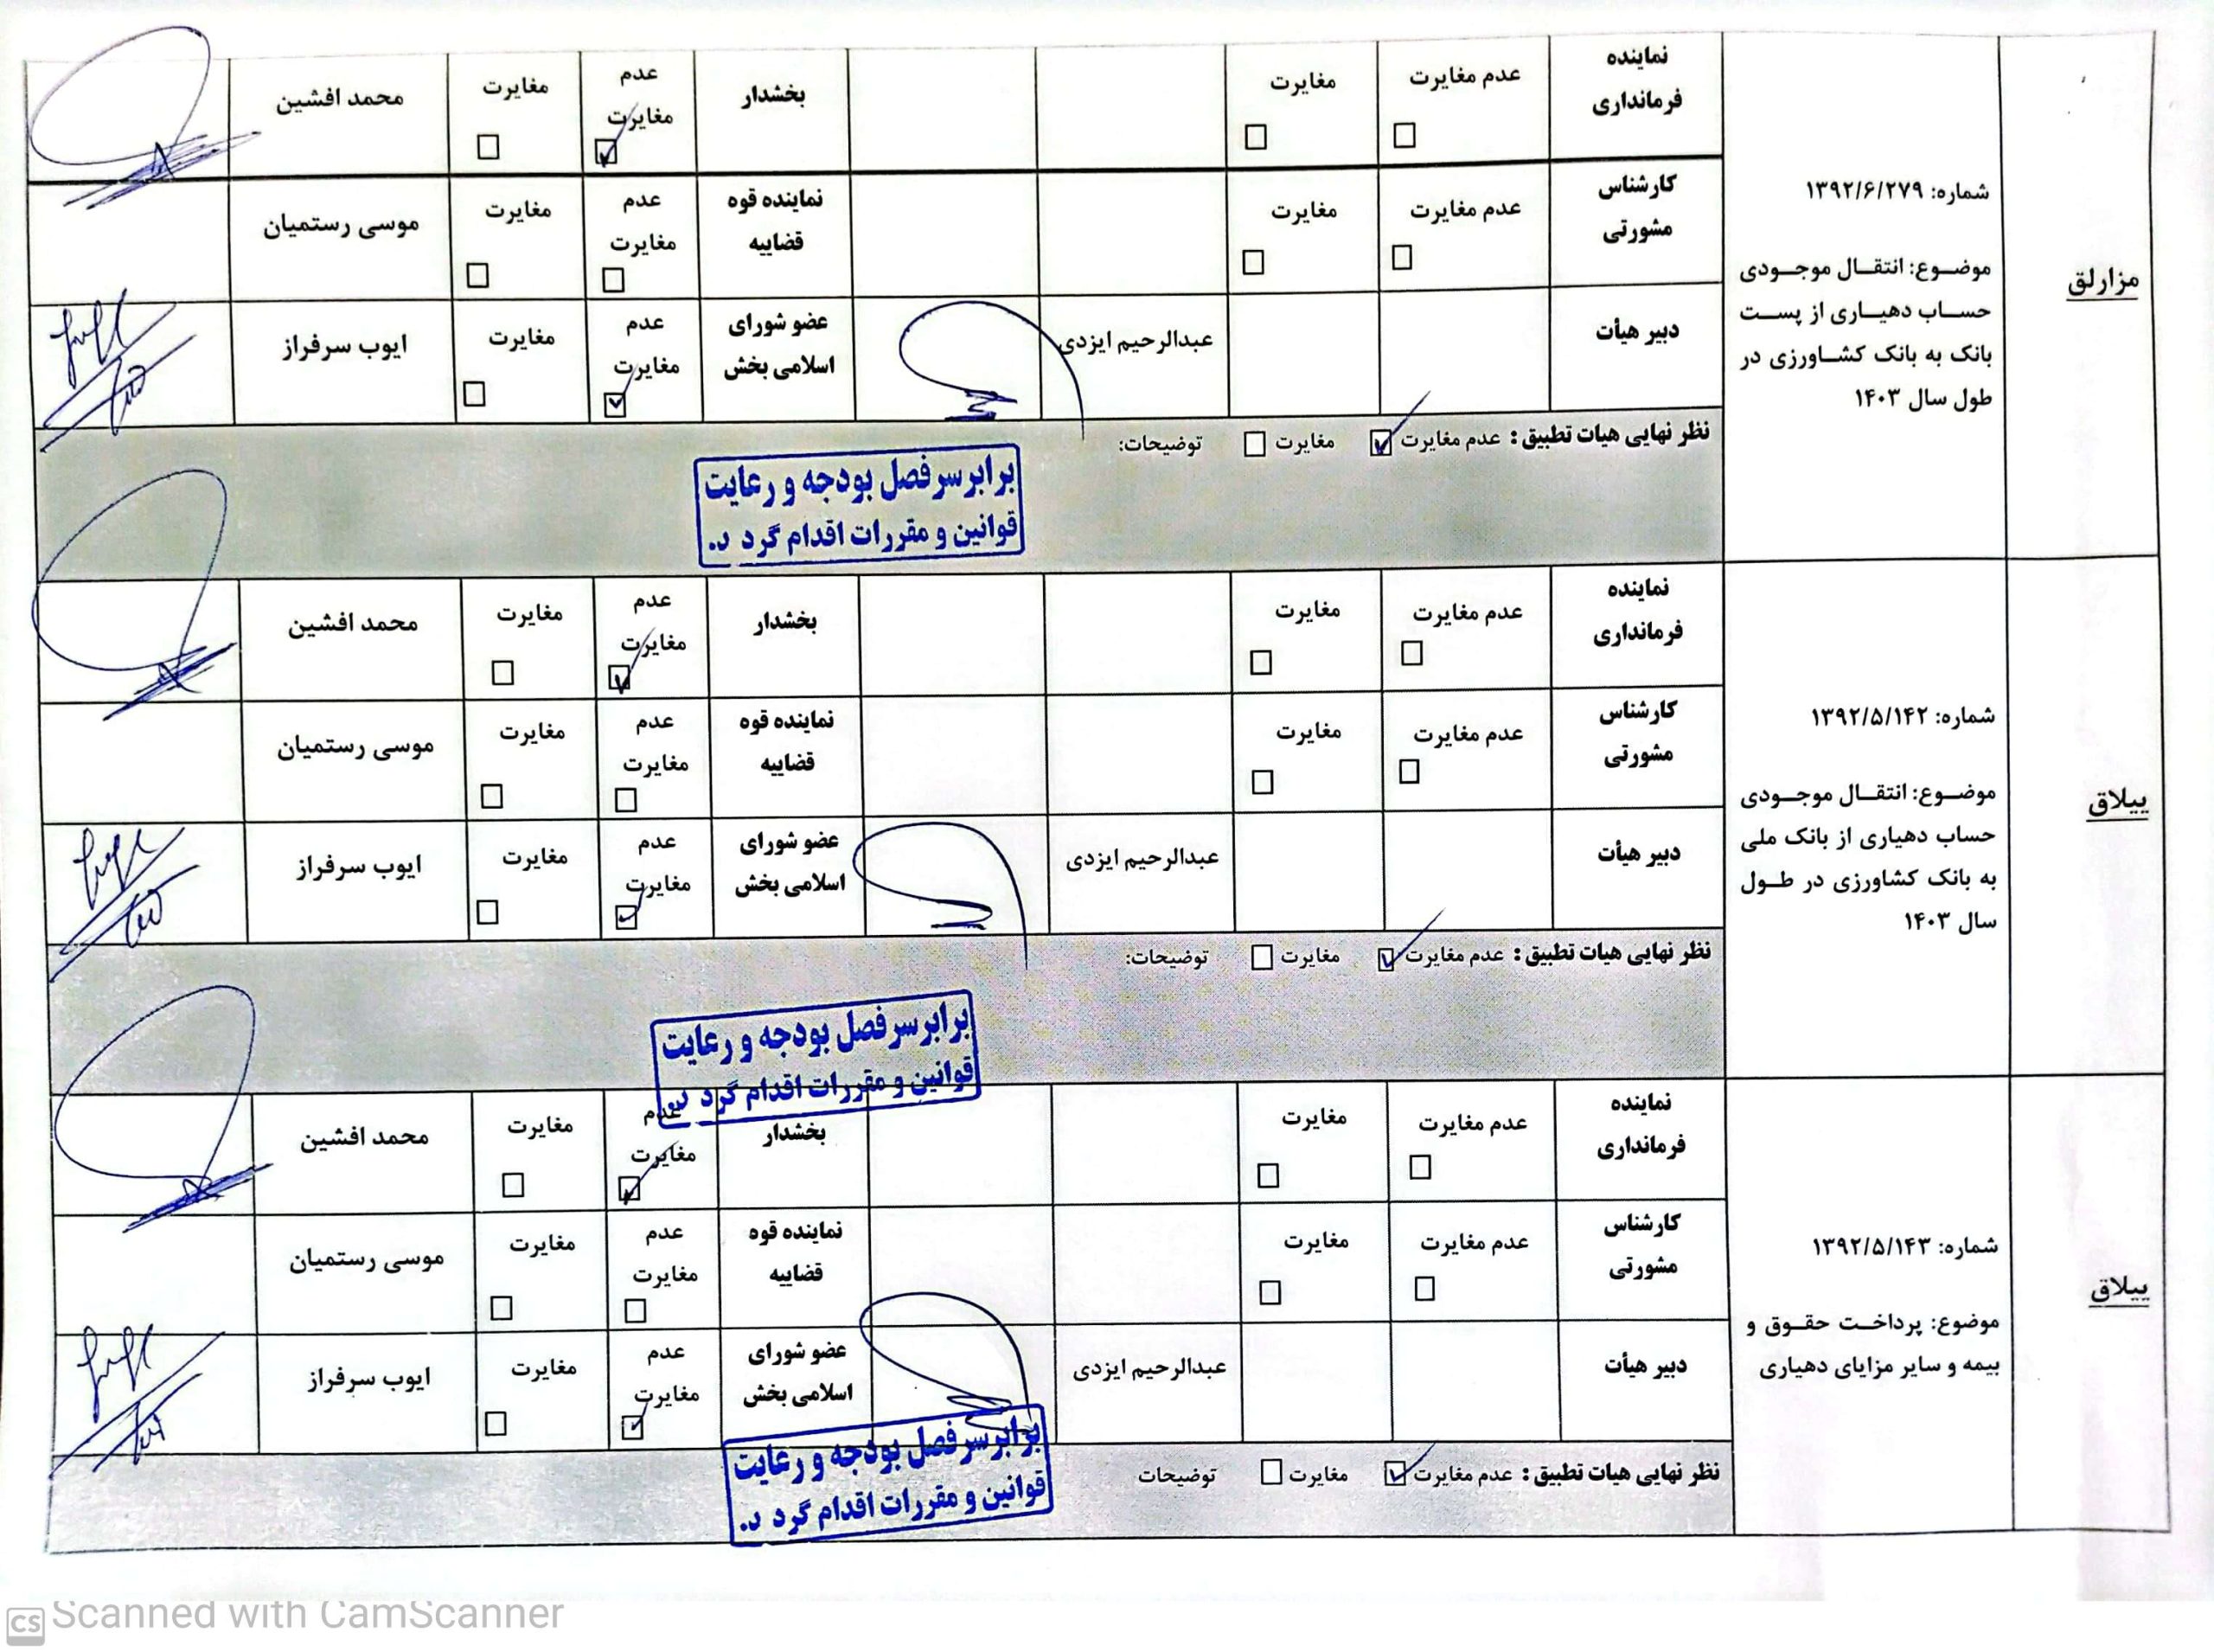 مزارلق
شماره: ۱۳۹۲/۶/۲۷۹
موضوع: انتقال موجودی
حساب دهیاری از پست
بانک به بانک کشاورزی در
طول سال ۱۴۰۳
نماینده
فرمانداری
عدم مغایرت
مغایرت
بخشدار
عدم
مغایرت
مغایرت
محمد افشین
کارشناس
مشورتی
عدم مغایرت
مغایرت
نماینده قوه
قضاییه
عدم
مغایرت
مغایرت
موسی رستمیان
دبیر هیأت
عبدالرحیم ایزدی
عضو شورای
اسلامی بخش
عدم
مغایرت
مغایرت
ایوب سرفراز
نظر نهایی هیات تطبیق: عدم مغایرت مغایرت توضیحات:
برابر سرفصل بودجه و رعایت
قوانین و مقررات اقدام گرد د.
ییلاق
شماره: ۱۳۹۲/۵/۱۴۲
موضوع: انتقال موجودی
حساب دهیاری از بانک ملی
به بانک کشاورزی در طول
سال ۱۴۰۳
نماینده
فرمانداری
عدم مغایرت
مغایرت
بخشدار
عدم
مغایرت
مغایرت
محمد افشین
کارشناس
مشورتی
عدم مغایرت
مغایرت
نماینده قوه
قضاییه
عدم
مغایرت
مغایرت
موسی رستمیان
دبیر هیأت
عبدالرحیم ایزدی
عضو شورای
اسلامی بخش
عدم
مغایرت
مغایرت
ایوب سرفراز
نظر نهایی هیات تطبیق: عدم مغایرت مغایرت توضیحات:
برابر سرفصل بودجه و رعایت
قوانین و مقررات اقدام گرد د.
ییلاق
شماره: ۱۳۹۲/۵/۱۴۳
موضوع: پرداخت حقوق و
بیمه و سایر مزایای دهیاری
نماینده
فرمانداری
عدم مغایرت
مغایرت
بخشدار
عدم
مغایرت
مغایرت
محمد افشین
کارشناس
مشورتی
عدم مغایرت
مغایرت
نماینده قوه
قضاییه
عدم
مغایرت
مغایرت
موسی رستمیان
دبیر هیأت
عبدالرحیم ایزدی
عضو شورای
اسلامی بخش
عدم
مغایرت
مغایرت
ایوب سرفراز
نظر نهایی هیات تطبیق: عدم مغایرت مغایرت توضیحات
برابر سرفصل بودجه و رعایت
قوانین و مقررات اقدام گرد د.
CS Scanned with CamScanner